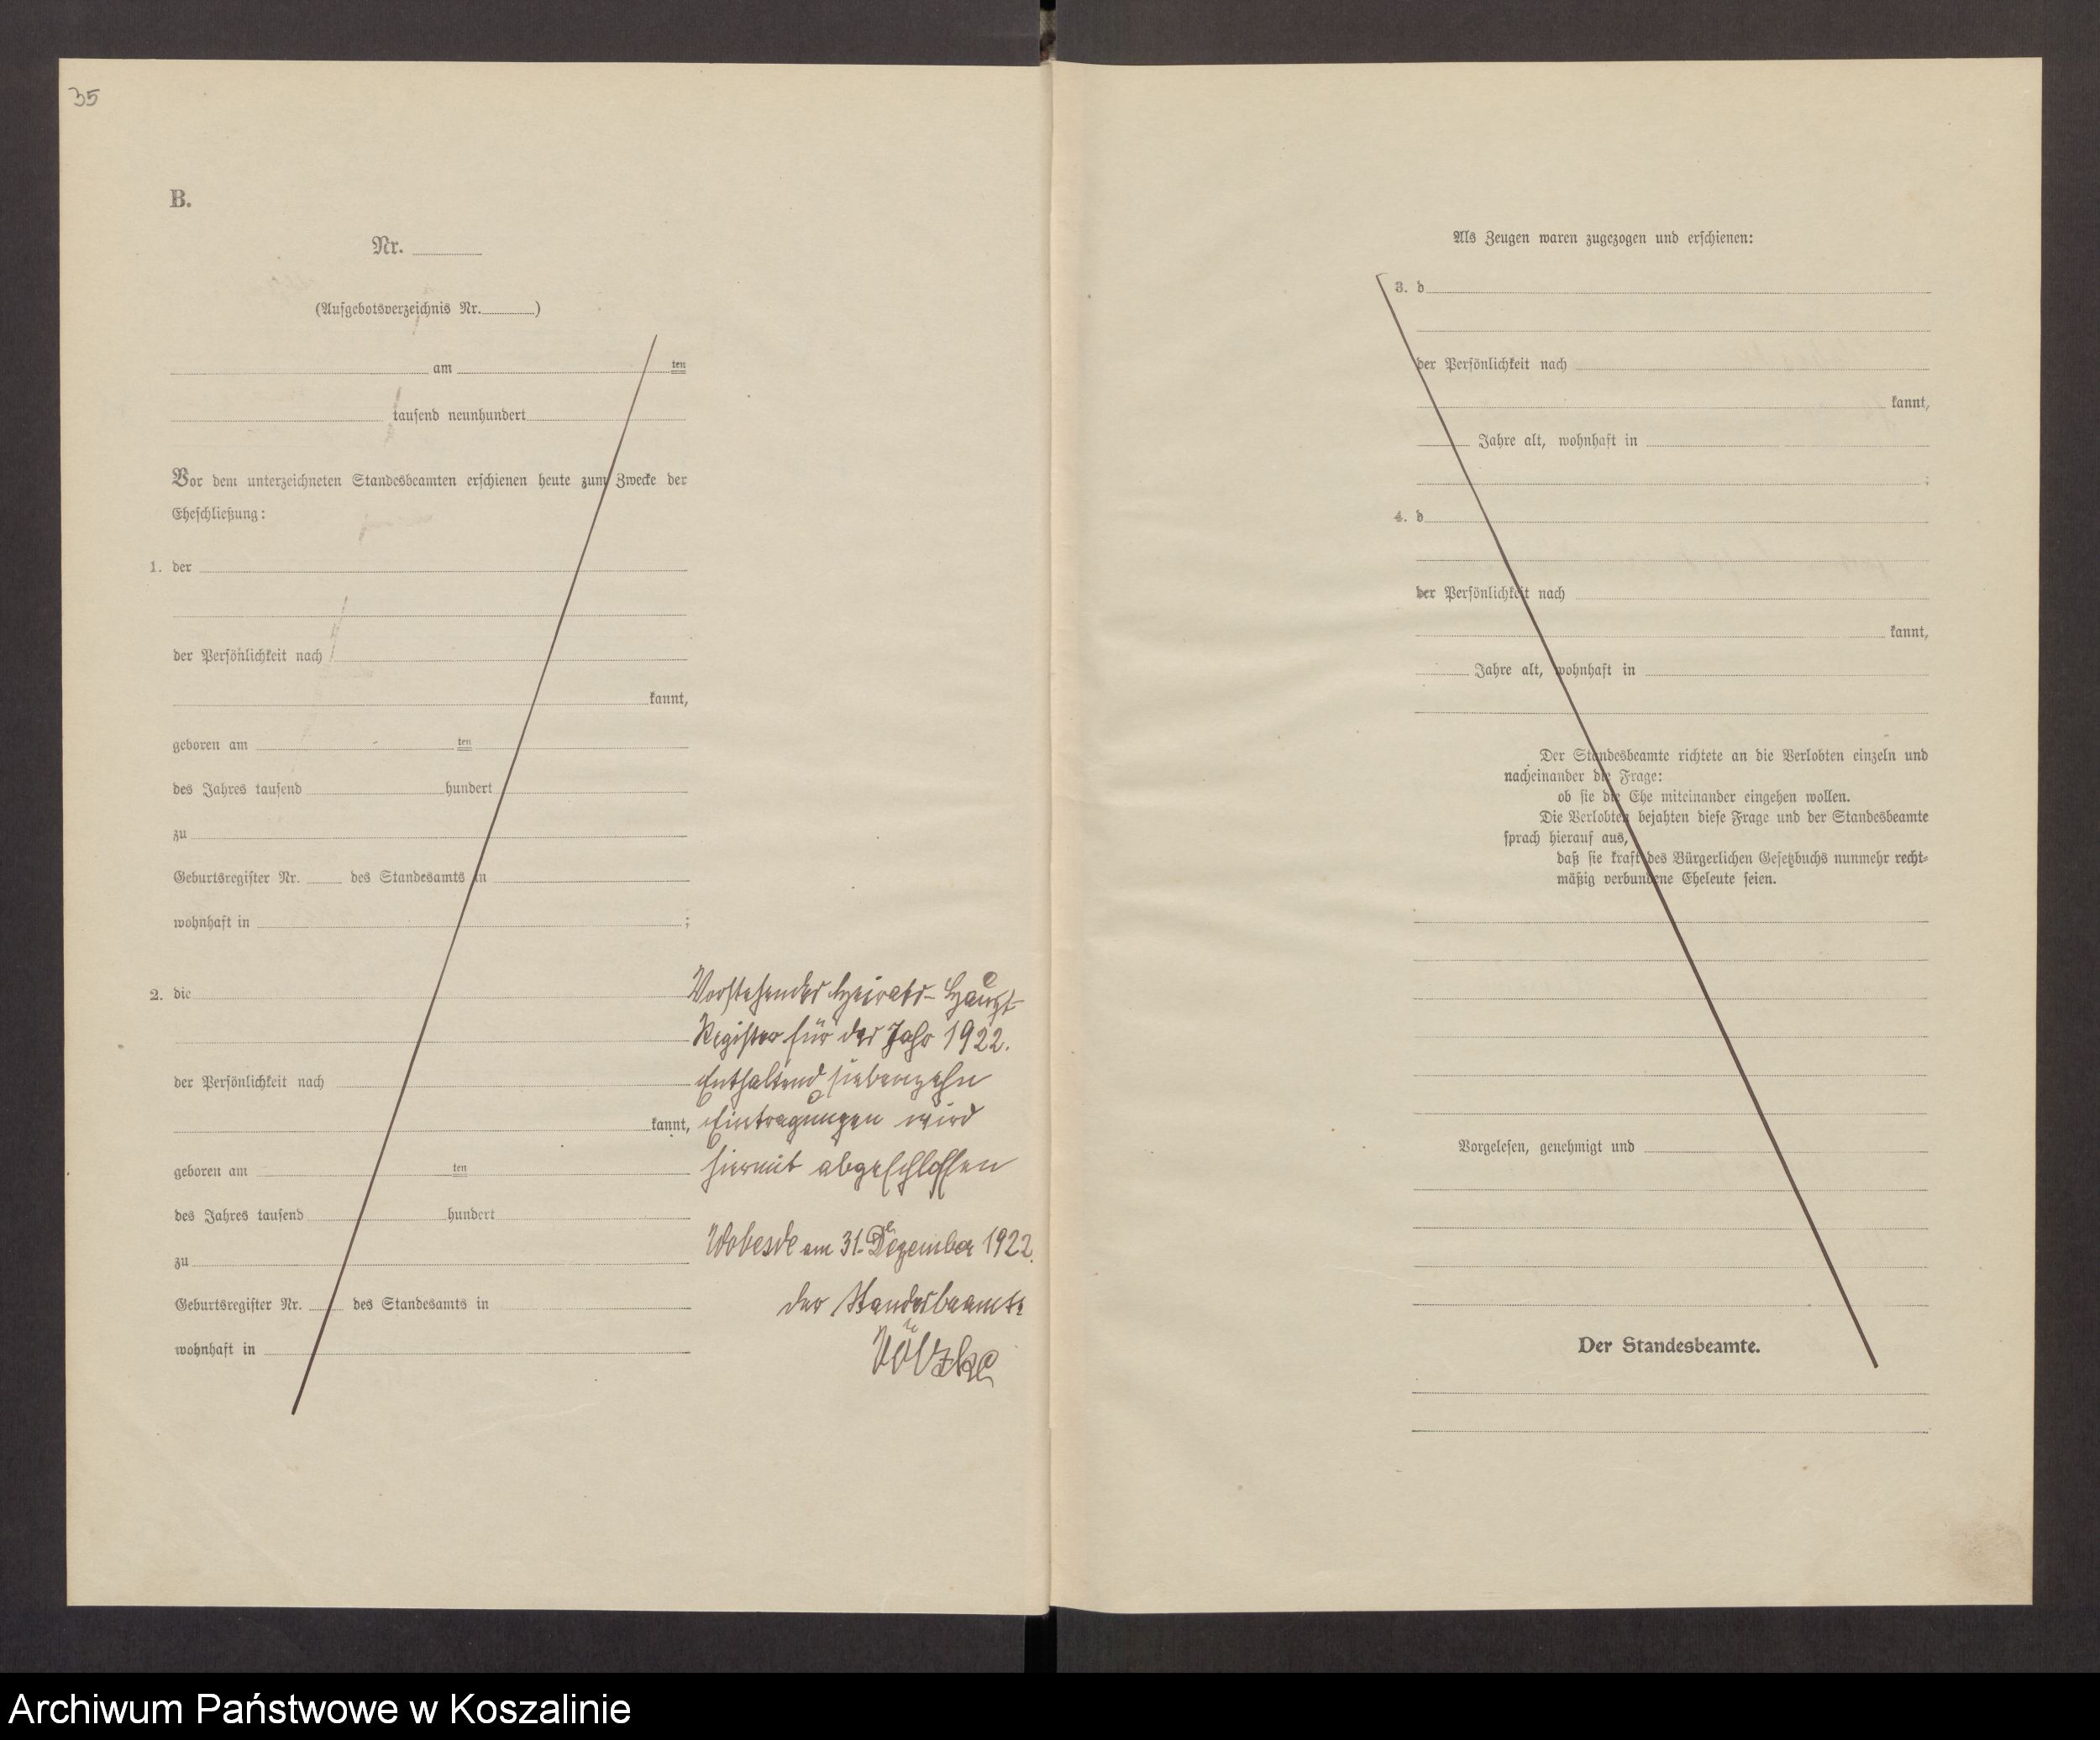 35
B.
Nr.
(Aufgebotsverzeichnis Nr. )
am ten
tausend neunhundert
Vor dem unterzeichneten Standesbeamten erschienen heute zum Zwecke der
Eheschließung:
1. der
der Persönlichkeit nach
kannt,
geboren am ten
des Jahres tausend hundert
zu
Geburtsregister Nr. des Standesamts in
wohnhaft in ;
2. die
der Persönlichkeit nach
kannt,
geboren am ten
des Jahres tausend hundert
zu
Geburtsregister Nr. des Standesamts in
wohnhaft in
Vorstehendes Heirats-Haupt-
Register für das Jahr 1922.
Enthaltend siebenzehn
Eintragungen wird
hiermit abgeschlossen
Wobesde am 31. Dezember 1922.
der Standesbeamte
Völzke
Als Zeugen waren zugezogen und erschienen:
3. d
der Persönlichkeit nach
kannt,
Jahre alt, wohnhaft in
;
4. d
der Persönlichkeit nach
kannt,
Jahre alt, wohnhaft in
Der Standesbeamte richtete an die Verlobten einzeln und
nacheinander die Frage:
ob sie die Ehe miteinander eingehen wollen.
Die Verlobten bejahten diese Frage und der Standesbeamte
sprach hierauf aus,
daß sie kraft des Bürgerlichen Gesetzbuchs nunmehr recht-
mäßig verbundene Eheleute seien.
Vorgelesen, genehmigt und
Der Standesbeamte.
Archiwum Państwowe w Koszalinie